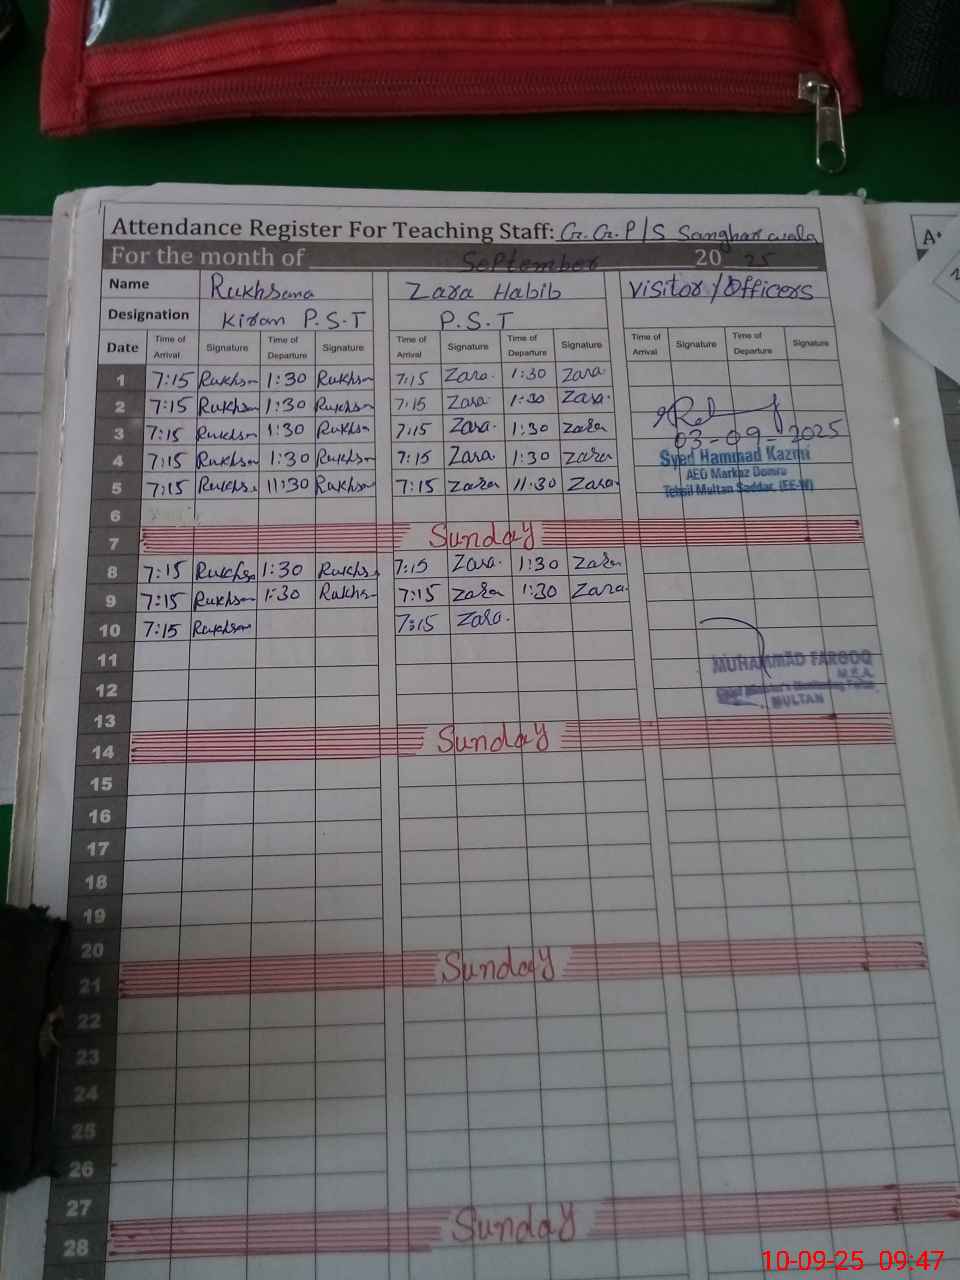 Attendance Register For Teaching Staff: G.G.P/S Sangharwala
For the month of September 20 25
Name Rukhsana Zara Habib Visitor/Officers
Designation Kiran P.S.T P.S.T
Date Time of Arrival Signature Time of Departure Signature Time of Arrival Signature Time of Departure Signature Time of Arrival Signature Time of Departure Signature
1 7:15 Rukhsan 1:30 Rukhsan 7:15 Zara. 1:30 Zara
2 7:15 Rukhsan 1:30 Rukhsan 7:15 Zara. 1:30 Zara.
3 7:15 Rukhsan 1:30 Rukhsan 7:15 Zara. 1:30 Zara
03-09-2025
4 7:15 Rukhsan 1:30 Rukhsan 7:15 Zara. 1:30 Zara
Syed Hammad Kazmi
AEO Markaz Domru
5 7:15 Rukhs. 11:30 Rukhsan 7:15 Zara 11:30 Zara.
Tehsil Multan Saddar (EE-W)
6
7 Sunday
8 7:15 Rukhsa 1:30 Rukhs. 7:15 Zara. 1:30 Zara
9 7:15 Rukhsan 1:30 Rukhs- 7:15 Zara 1:30 Zara.
10 7:15 Rukhsan 7:15 Zara.
11
MUHAMMAD FAROOQ
M.E.A.
12
MULTAN
13
14 Sunday
15
16
17
18
19
20
21 Sunday
22
23
24
25
26
27
28 Sunday
10-09-25 09:47